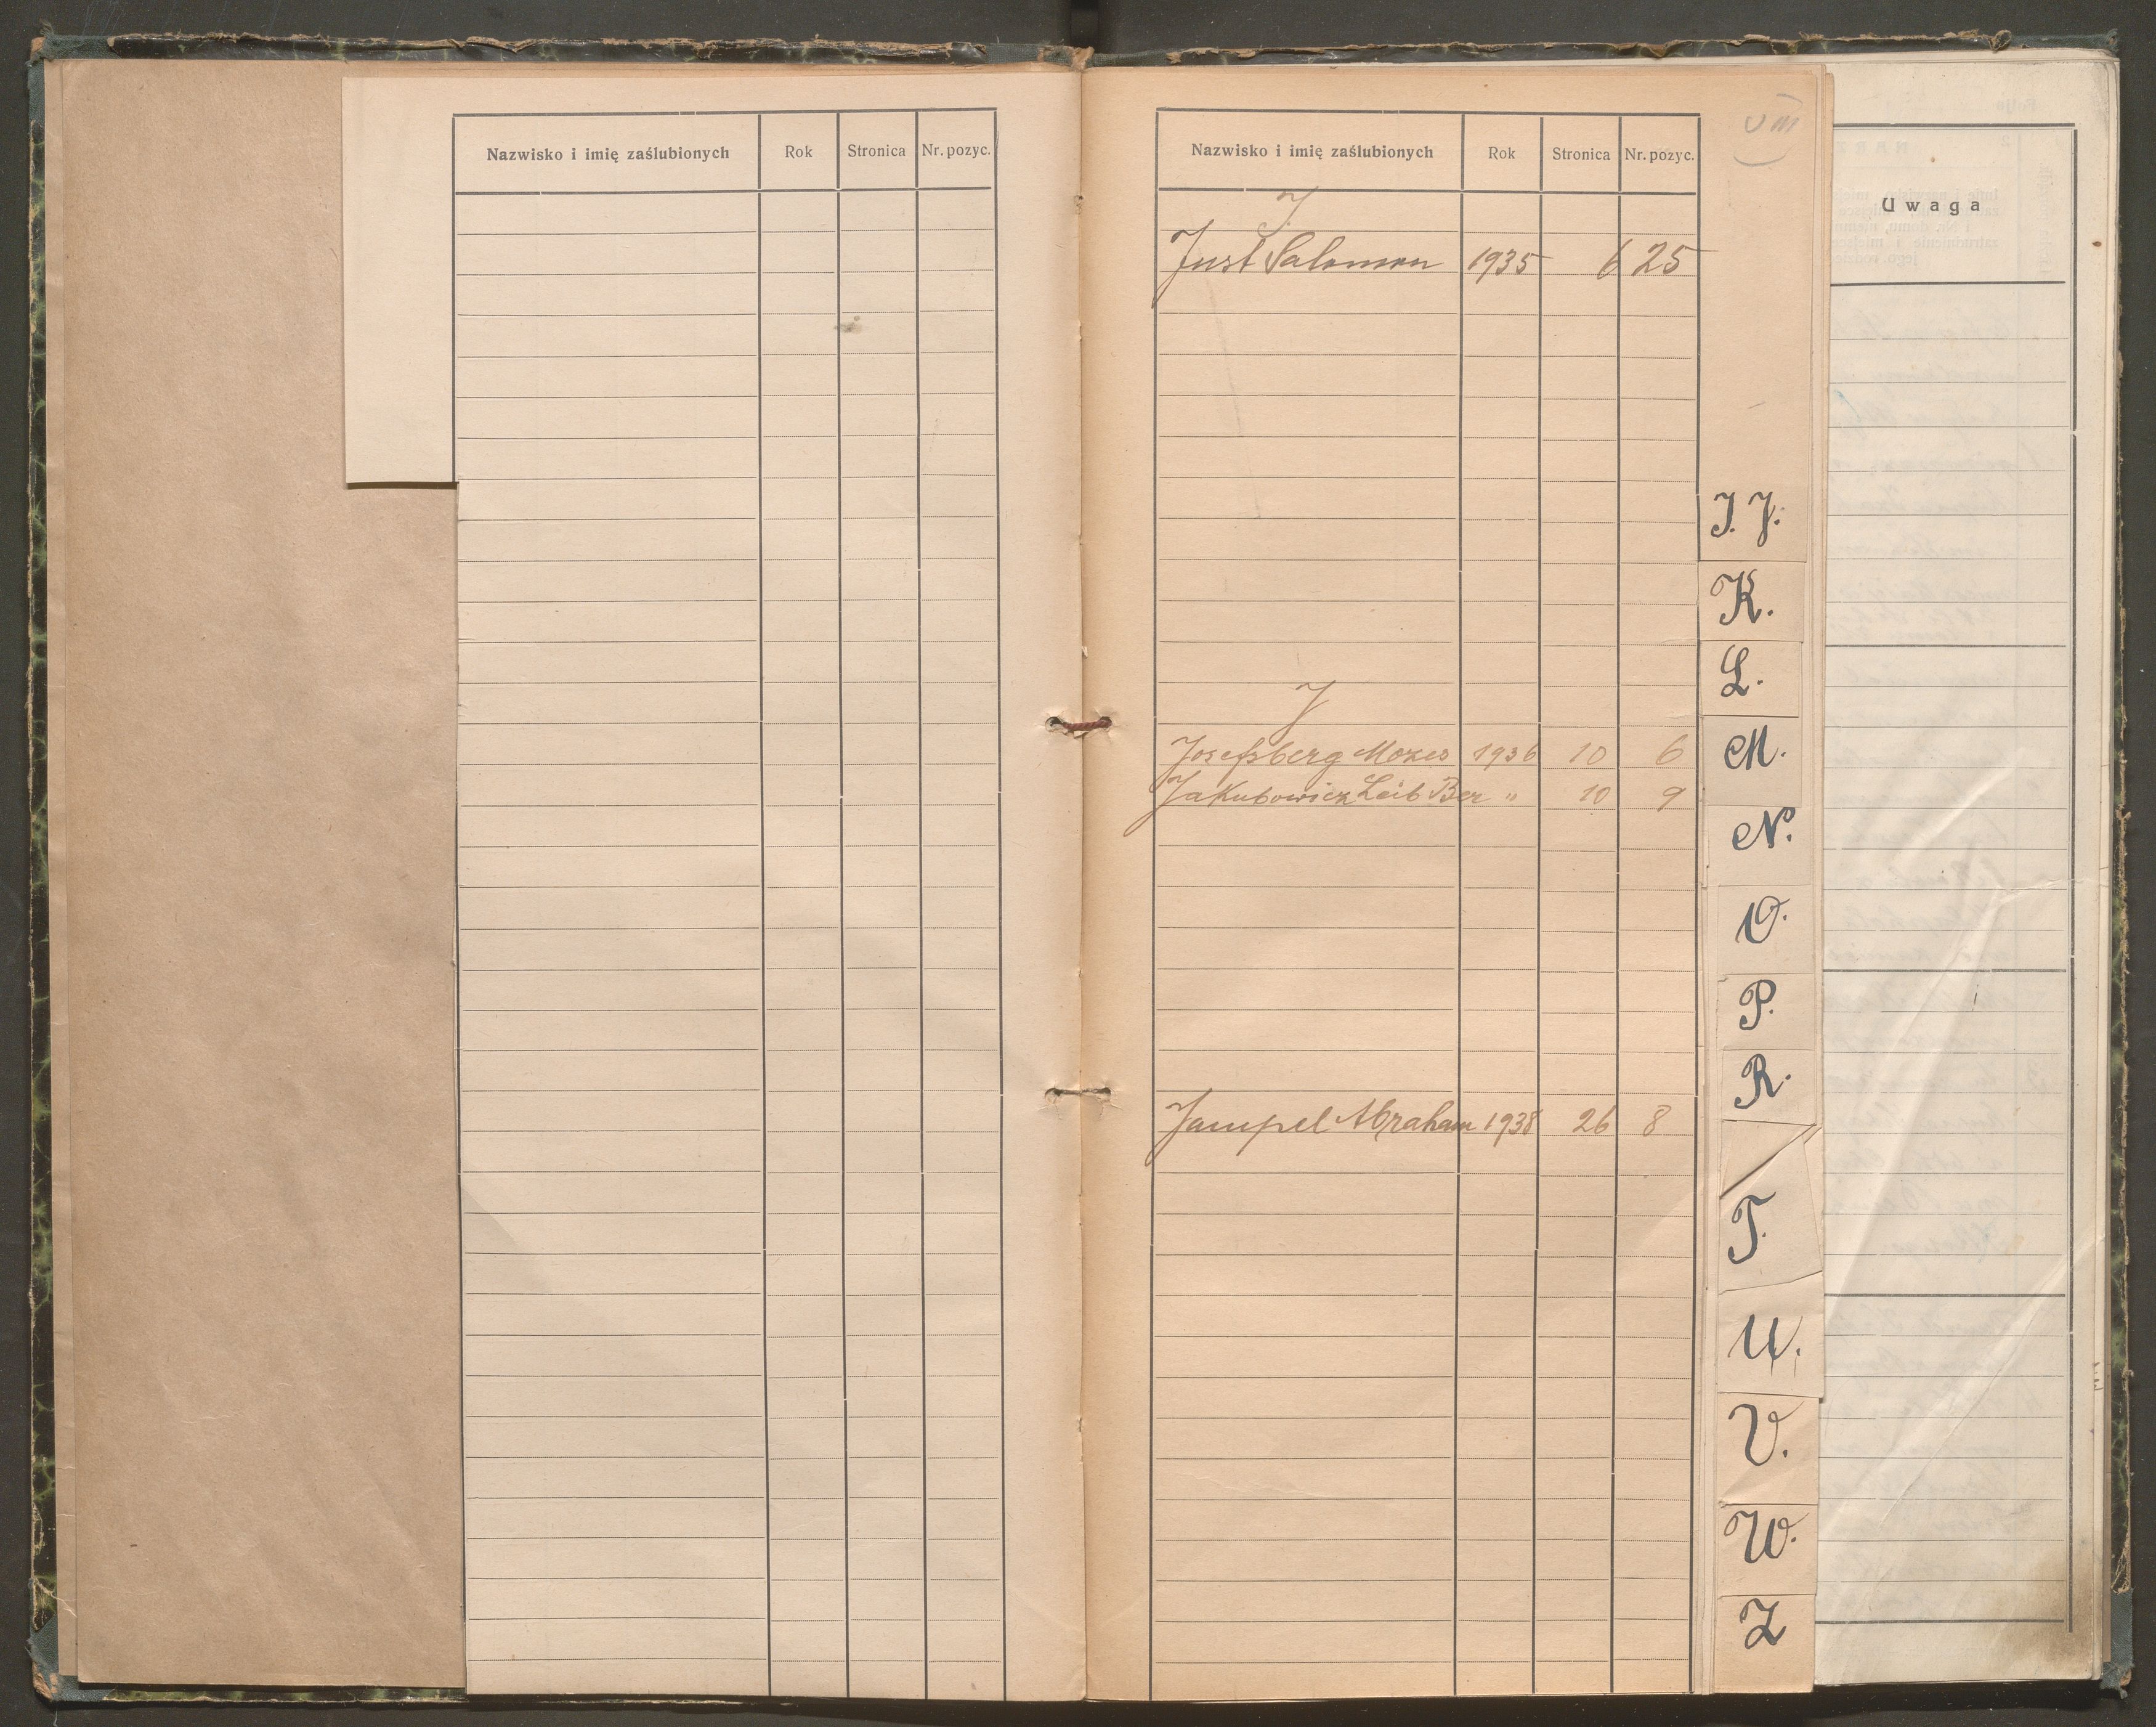 Nazwisko i imię zaślubionych Rok Stronica Nr. pozyc.
Nazwisko i imię zaślubionych Rok Stronica Nr. pozyc.
VIII
J
Just Salomon 1935 6 25
J
Josefsberg Mozes 1936 10 6
Jakubowicz Leib Ber " 10 9
Jampel Abraham 1938 26 8
I. J.
K.
L.
M.
N.
O.
P.
R.
T.
U.
V.
W.
Z
Uwaga